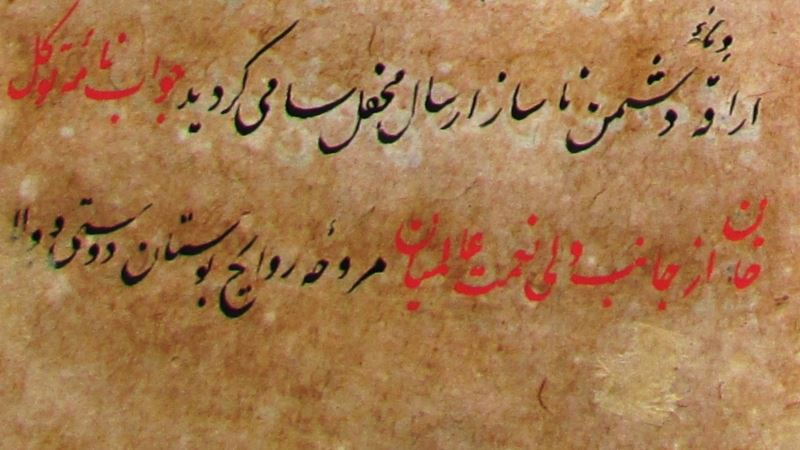 اراقهٔ دماء دشمن ناساز ارسال محفل سامی گردید جواب نامهٔ توکل
خان از جانب ولی نعمت عالمیان مروحهٔ روایح بوستان دوستی و ولا